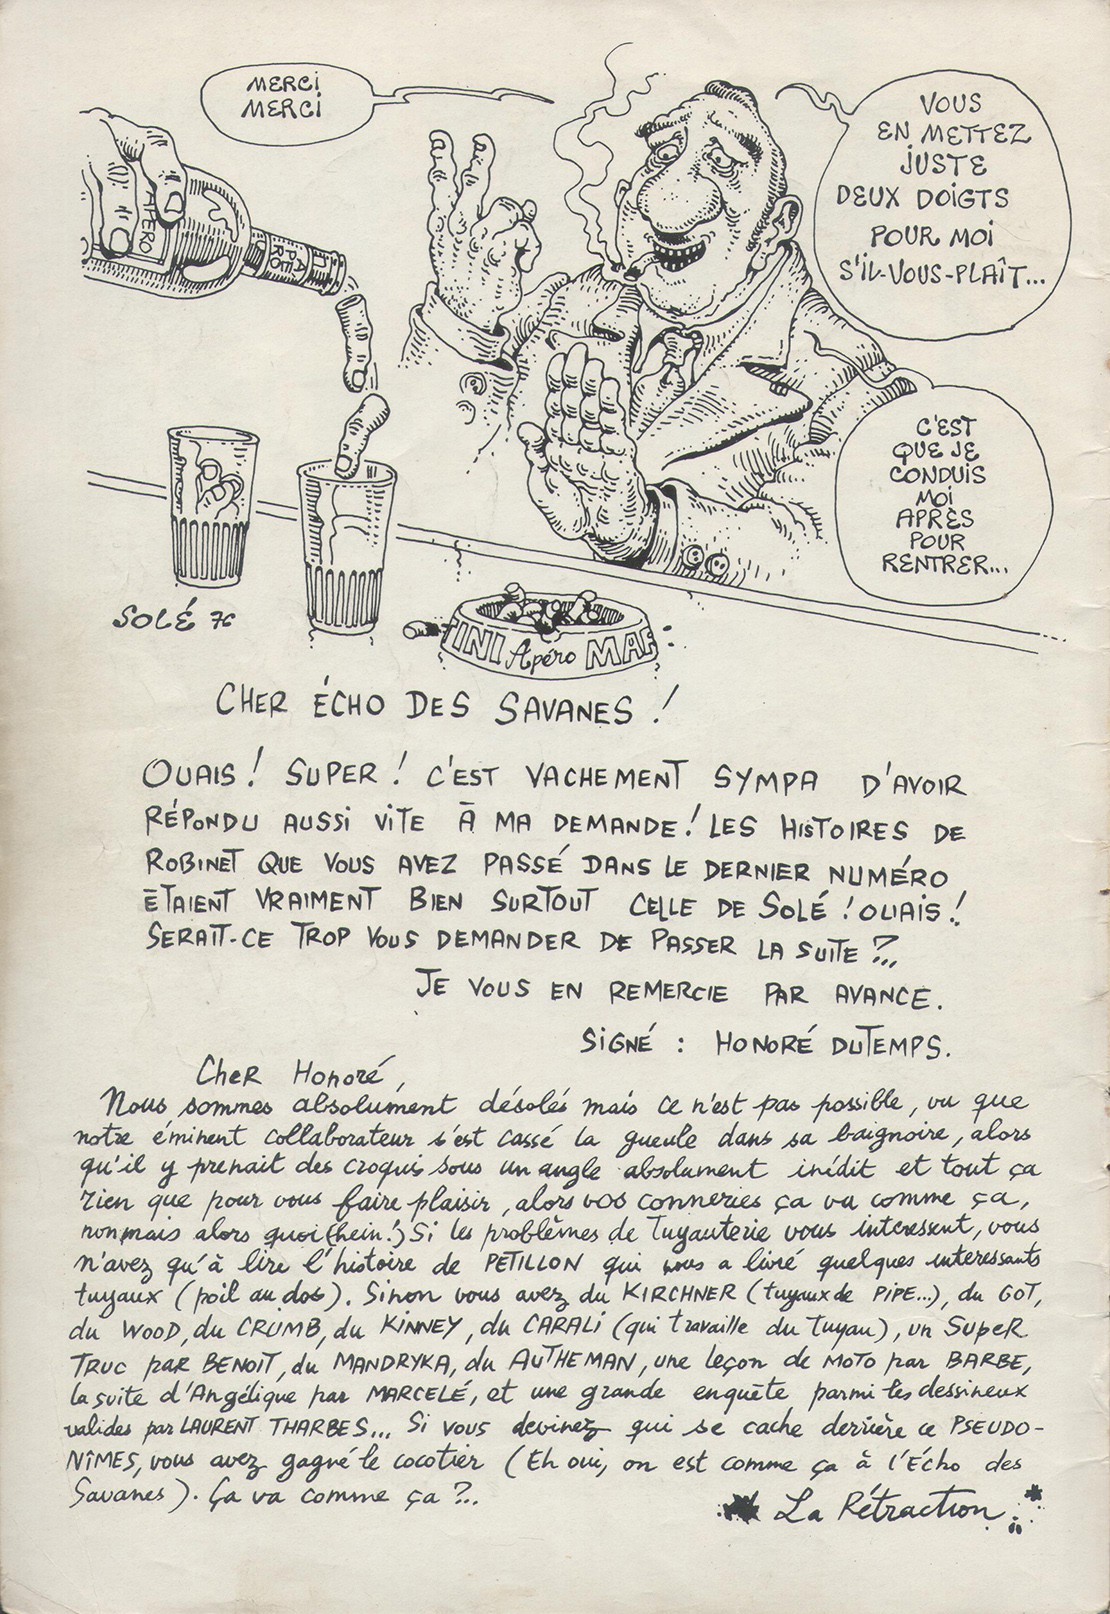 MERCI
MERCI
VOUS
EN METTEZ
JUSTE
DEUX DOIGTS
POUR MOI
S'IL-VOUS-PLAÎT...
APÉRO
APÉ
RO
C'EST
QUE JE
CONDUIS
MOI
APRÈS
POUR
RENTRER...
SOLÉ 76
TINI Apéro MAR
CHER ÉCHO DES SAVANES !
OUAIS ! SUPER ! C'EST VACHEMENT SYMPA D'AVOIR
RÉPONDU AUSSI VITE À MA DEMANDE ! LES HISTOIRES DE
ROBINET QUE VOUS AVEZ PASSÉ DANS LE DERNIER NUMÉRO
ÉTAIENT VRAIMENT BIEN SURTOUT CELLE DE SOLÉ ! OUAIS !
SERAIT-CE TROP VOUS DEMANDER DE PASSER LA SUITE ?...
JE VOUS EN REMERCIE PAR AVANCE.
SIGNÉ : HONORÉ DUTEMPS.
Cher Honoré,
Nous sommes absolument désolés mais ce n'est pas possible, vu que
notre éminent collaborateur s'est cassé la gueule dans sa baignoire, alors
qu'il y prenait des croquis sous un angle absolument inédit et tout ça
rien que pour vous faire plaisir, alors vos conneries ça va comme ça,
non mais alors quoi (hein !) Si les problèmes de Tuyauterie vous interessent, vous
n'avez qu'à lire l'histoire de PETILLON qui nous a livré quelques interessants
tuyaux (poil au dos). Sinon vous avez du KIRCHNER (tuyaux de PIPE...), du GOT,
du WOOD, du CRUMB, du KINNEY, du CARALI (qui travaille du tuyau), un SUPER
TRUC PAR BENOIT, du MANDRYKA, du AUTHEMAN, une leçon de MOTO par BARBE,
la suite d'Angélique par MARCELÉ, et une grande enquête parmi les dessineux
valides par LAURENT THARBES... Si vous devinez qui se cache derrière ce PSEUDO-
NÎMES, vous avez gagné le cocotier (Eh oui, on est comme ça à l'Écho des
Savanes). Ça va comme ça ?...
La Rétraction.